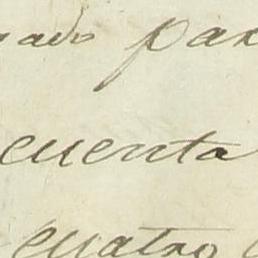 gado par
cuenta
cuatro